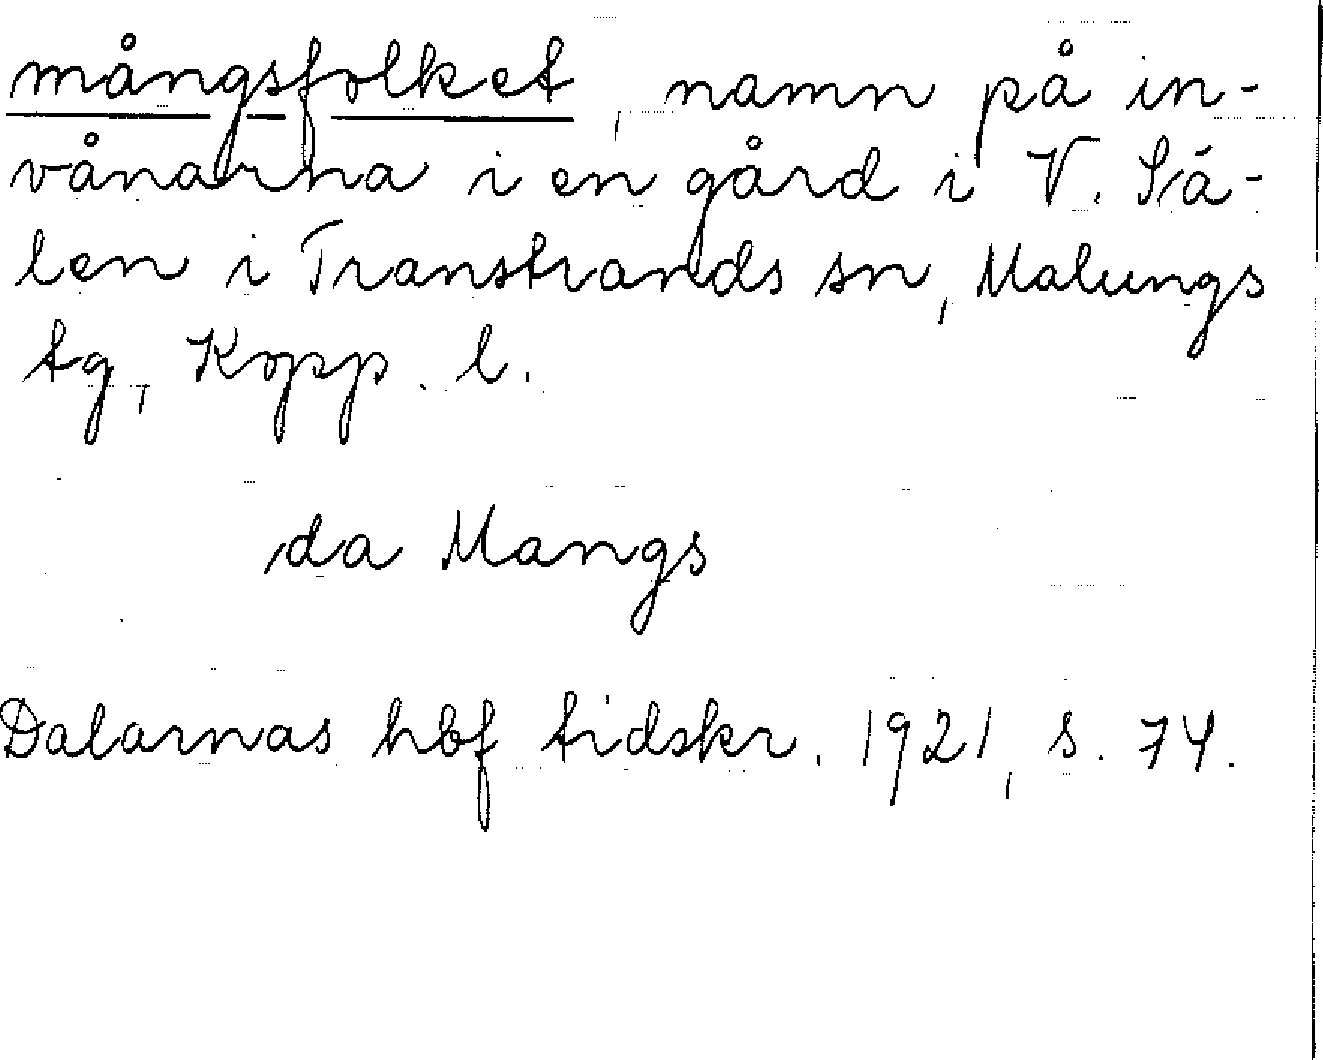 mångsfolket, namn på in-
vånarna i en gård i V. Sä-
len i Transtrands sn, Malungs
tg, Kopp. l.
da Mangs
Dalarnas hbf tidskr. 1921, s. 74.